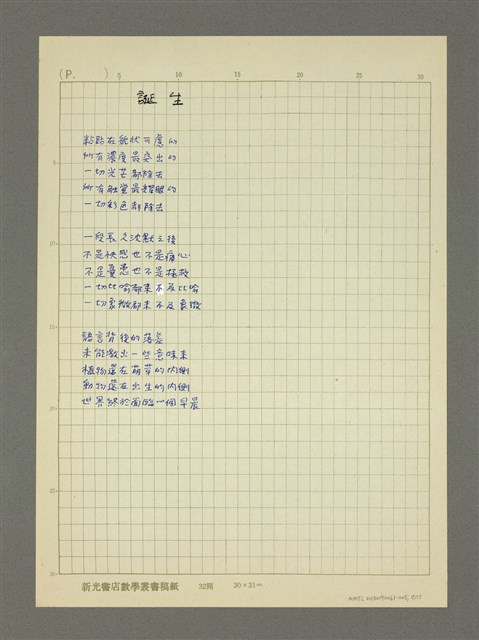 (P.      )
5 10 15 20 25 30
誕生
粘貼在能狀可處的
所有濃度最突出的
一切光芒都除去
所有触覺最耀眼的
一切彩色都除去
一段長久沈默之後
不是快感也不是痛心
不是憂患也不是拯救
一切比喻都來不及比喻
一切象徵都來不及象徵
語言背後的落差
未能激出一些意味來
植物還在萌芽的內側
動物還在出生的內側
世界終於面臨一個早晨
5
10
15
20
25
30
新光書店數學叢書稿紙 32開 30×21